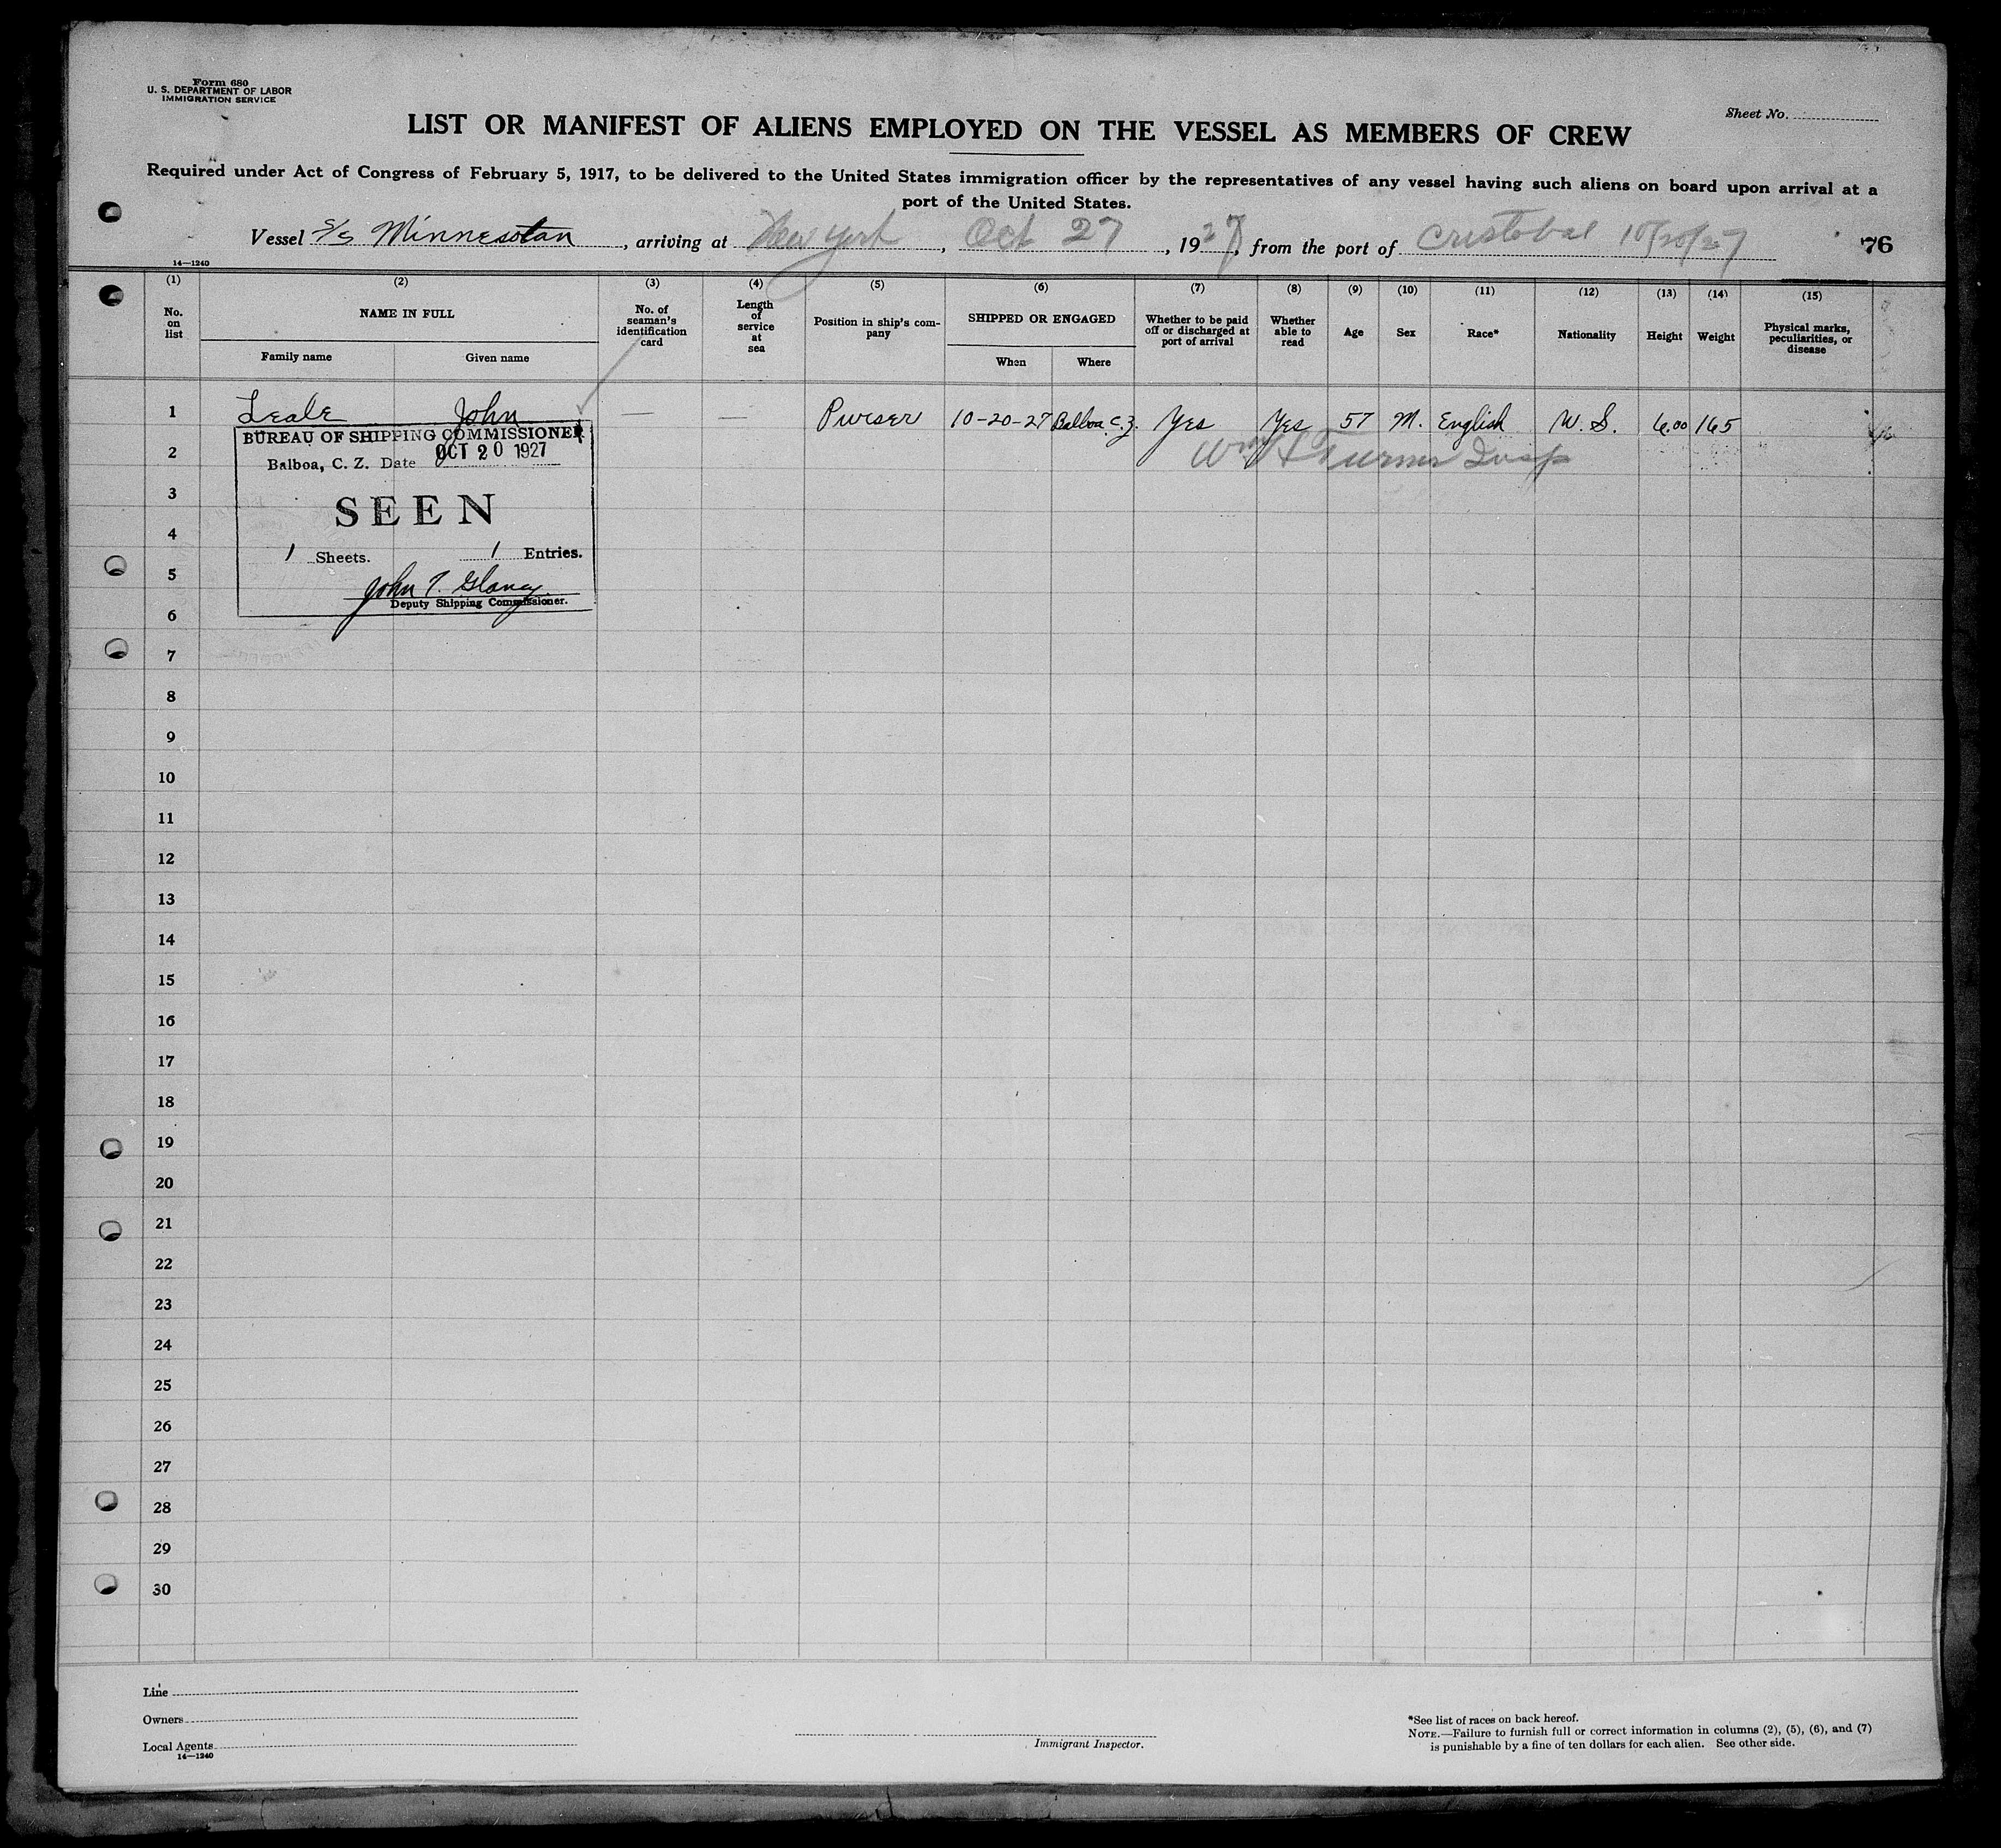 Form 680
U. S. DEPARTMENT OF LABOR
IMMIGRATION SERVICE
Sheet No.
LIST OR MANIFEST OF ALIENS EMPLOYED ON THE VESSEL AS MEMBERS OF CREW
Required under Act of Congress of February 5, 1917, to be delivered to the United States immigration officer by the representatives of any vessel having such aliens on board upon arrival at a
port of the United States.
Vessel S/S Minnesotan, arriving at New York, Oct 27, 1927, from the port of Cristobal 10/20/27
76
14—1240
(1) (2) (3) (4) (5) (6) (7) (8) (9) (10) (11) (12) (13) (14) (15)
No. on list
NAME IN FULL
Family name Given name
No. of seaman's identification card
Length of service at sea
Position in ship's com-pany
SHIPPED OR ENGAGED
When Where
Whether to be paid off or discharged at port of arrival
Whether able to read
Age
Sex
Race*
Nationality
Height
Weight
Physical marks, peculiarities, or disease
1 Leale John — — Purser 10-20-27 Balboa C.Z. Yes Yes 57 M. English 6.00 165
BUREAU OF SHIPPING COMMISSIONER
2
Balboa, C. Z. Date OCT 20 1927
Turner Insp
3
SEEN
4
1 Sheets. 1 Entries.
5
John T. Glancy
Deputy Shipping Commissioner.
6
7
8
9
10
11
12
13
14
15
16
17
18
19
20
21
22
23
24
25
26
27
28
29
30
Line
Owners
Local Agents
14—1240
Immigrant Inspector.
*See list of races on back hereof.
NOTE.—Failure to furnish full or correct information in columns (2), (5), (6), and (7)
is punishable by a fine of ten dollars for each alien. See other side.